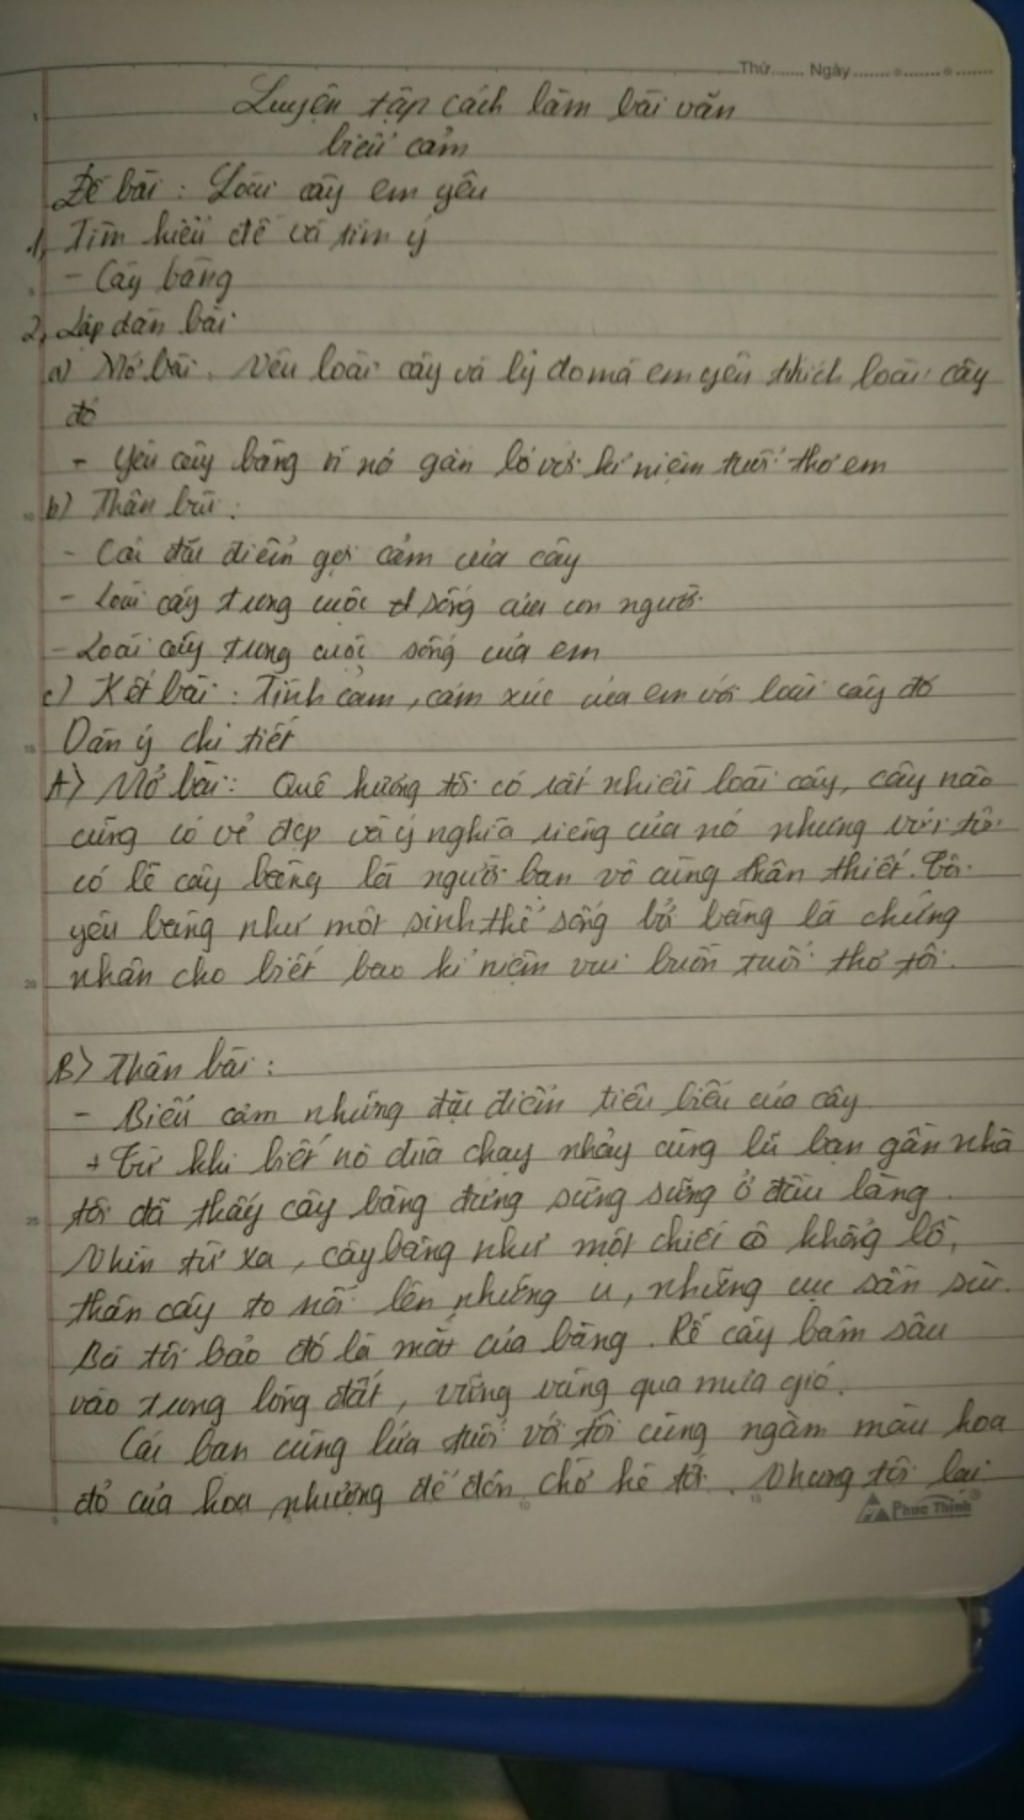 Thứ....... Ngày.......o.......o.......
Luyện tập cách làm bài văn
biểu cảm
Đề bài : Loài cây em yêu
1, Tìm hiểu đề và tìm ý
- Cây bàng
2, Lập dàn bài
a) Mở bài. Nêu loài cây và lý do mà em yêu thích loài cây
đó
- Yêu cây bàng vì nó gắn bó với kỉ niệm tuổi thơ em
b) Thân bài :
- Các đặc điểm gợi cảm của cây
- Loài cây trong cuộc sống của con người
- Loài cây trong cuộc sống của em
c) Kết bài : Tình cảm, cảm xúc của em với loài cây đó
Dàn ý chi tiết
A) Mở bài: Quê hương tôi có rất nhiều loài cây, cây nào
cũng có vẻ đẹp và ý nghĩa riêng của nó nhưng với tôi
có lẽ cây bàng là người bạn vô cùng thân thiết. Tôi
yêu bàng như một sinh thể sống bởi bàng là chứng
nhân cho biết bao kỉ niệm vui buồn tuổi thơ tôi.
B) Thân bài :
- Biểu cảm những đặc điểm tiêu biểu của cây
+ Từ khi biết nô đùa chạy nhảy cùng lũ bạn gần nhà
tôi đã thấy cây bàng đứng sừng sững ở đầu làng.
Nhìn từ xa, cây bàng như một chiếc ô khổng lồ,
thân cây to nổi lên những u, những cục sần sùi.
Bà tôi bảo đó là mắt của bàng. Rễ cây bám sâu
vào trong lòng đất, vững vàng qua mưa gió.
Các bạn cùng lứa tuổi với tôi cùng ngắm màu hoa
đỏ của hoa phượng để đón chờ hè tới. Nhưng tôi lại
Phuc Thinh